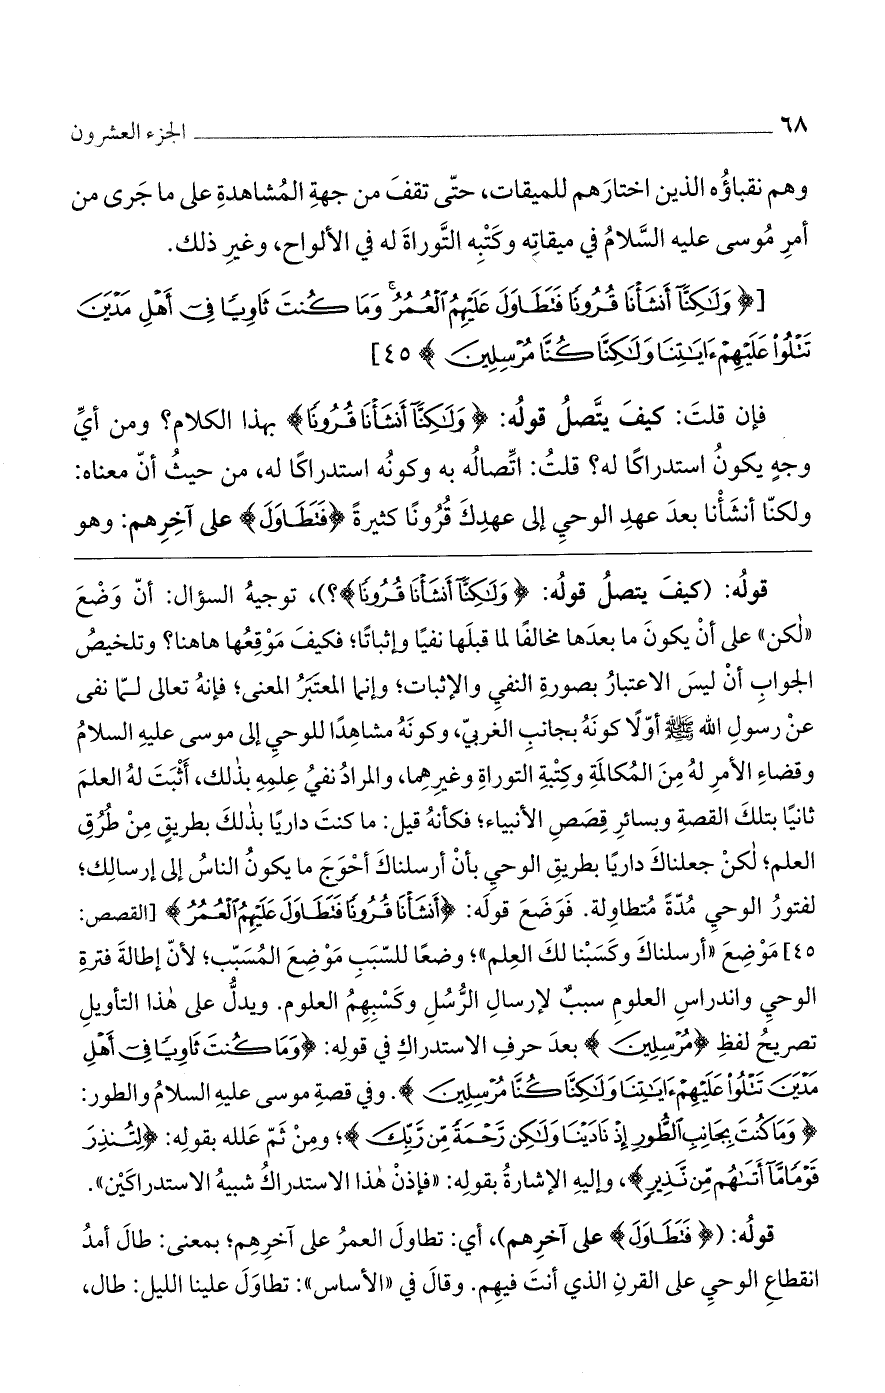 ٦٨ ــــــــــــــــــــــــــــــــ الجزء العشرون
وهم نقباؤُه الذين اختارَهم للميقات، حتّى تقفَ من جهةِ المُشاهدةِ على ما جَرى من
أمرِ مُوسى عليه السَّلامُ في ميقاتِه وكَتْبِه التَّوراةَ له في الألواح، وغيرِ ذلك.
[﴿ وَلَٰكِنَّآ أَنشَأْنَا قُرُونًا فَتَطَاوَلَ عَلَيْهِمُ ٱلْعُمُرُ ۚ وَمَا كُنتَ ثَاوِيًا فِىٓ أَهْلِ مَدْيَنَ
تَتْلُوا۟ عَلَيْهِمْ ءَايَٰتِنَا وَلَٰكِنَّا كُنَّا مُرْسِلِينَ ﴾ ٤٥]
فإن قلتَ: كيفَ يتَّصلُ قولُه: ﴿ وَلَٰكِنَّآ أَنشَأْنَا قُرُونًا﴾ بهذا الكلام؟ ومن أيِّ
وجهٍ يكونُ استدراكًا له؟ قلتُ: اتِّصالُه به وكونُه استدراكًا له، من حيثُ أنّ معناه:
ولكنّا أنشَأْنا بعدَ عهدِ الوحيِ إلى عهدِكَ قُرُونًا كثيرةً ﴿فَتَطَاوَلَ﴾ على آخِرِهم: وهو
قولُه: (كيفَ يتصلُ قولُه: ﴿ وَلَٰكِنَّآ أَنشَأْنَا قُرُونًا﴾؟)، توجيهُ السؤال: أنّ وَضْعَ
«لٰكن» على أنْ يكونَ ما بعدَها مخالفًا لما قبلَها نفيًا وإثباتًا؛ فكيفَ مَوْقِعُها هاهنا؟ وتلخيصُ
الجوابِ أنْ ليسَ الاعتبارُ بصورةِ النفيِ والإثبات؛ وإنما المعتَبَرُ المعنى؛ فإنهُ تعالى لمّا نفى
عنْ رسولِ الله ﷺ أوّلًا كونَهُ بجانبِ الغربيّ، وكونَهُ مشاهِدًا للوحيِ إلى موسى عليهِ السلامُ
وقضاءِ الأمرِ لهُ مِنَ المُكالَمةِ وكِتْبةِ التوراةِ وغيرِهما، والمرادُ نفيُ عِلمِهِ بذٰلك، أثْبَتَ لهُ العلمَ
ثانيًا بتلكَ القصةِ وبسائرِ قِصَصِ الأنبياء؛ فكأنهُ قيل: ما كنتَ داريًا بذٰلكَ بطريقٍ مِنْ طُرُقِ
العلم؛ لٰكنْ جعلناكَ داريًا بطريقِ الوحيِ بأنْ أرسلناكَ أحْوَجَ ما يكونُ الناسُ إلى إرسالِك؛
لفتورُ الوحيِ مُدّةً مُتطاوِلة. فَوَضَعَ قولَه: ﴿أَنشَأْنَا قُرُونًا فَتَطَاوَلَ عَلَيْهِمُ ٱلْعُمُرُ﴾ [القصص:
٤٥] مَوْضِعَ «أرسلناكَ وكَسَبْنا لكَ العِلم»؛ وضعًا للسّبَبِ مَوْضِعَ المُسَبّب؛ لأنّ إطالةَ فترةِ
الوحيِ واندراسِ العلومِ سببٌ لإرسالِ الرُّسُلِ وكَسْبِهِمُ العلوم. ويدلُّ على هٰذا التأويلِ
تصريحُ لفظِ ﴿مُرْسِلِينَ ﴾ بعدَ حرفِ الاستدراكِ في قولِه: ﴿وَمَا كُنتَ ثَاوِيًا فِىٓ أَهْلِ
مَدْيَنَ تَتْلُوا۟ عَلَيْهِمْ ءَايَٰتِنَا وَلَٰكِنَّا كُنَّا مُرْسِلِينَ ﴾. وفي قصةِ موسى عليهِ السلامُ والطور:
﴿ وَمَا كُنتَ بِجَانِبِ ٱلطُّورِ إِذْ نَادَيْنَا وَلَٰكِن رَّحْمَةً مِّن رَّبِّكَ ﴾؛ ومِنْ ثَمّ عَلله بقولِه: ﴿لِتُنذِرَ
قَوْمًا مَّآ أَتَىٰهُم مِّن نَّذِيرٍ﴾، وإليهِ الإشارةُ بقولِه: «فإذنْ هٰذا الاستدراكُ شبيهُ الاستدراكَيْن».
قولُه: (﴿ فَتَطَاوَلَ﴾ على آخرِهم)، أي: تطاولَ العمرُ على آخرِهِم؛ بمعنى: طالَ أمدُ
انقطاعِ الوحيِ على القرنِ الذي أنتَ فيهِم. وقالَ في «الأساس»: تطاوَلَ علينا الليل: طال،